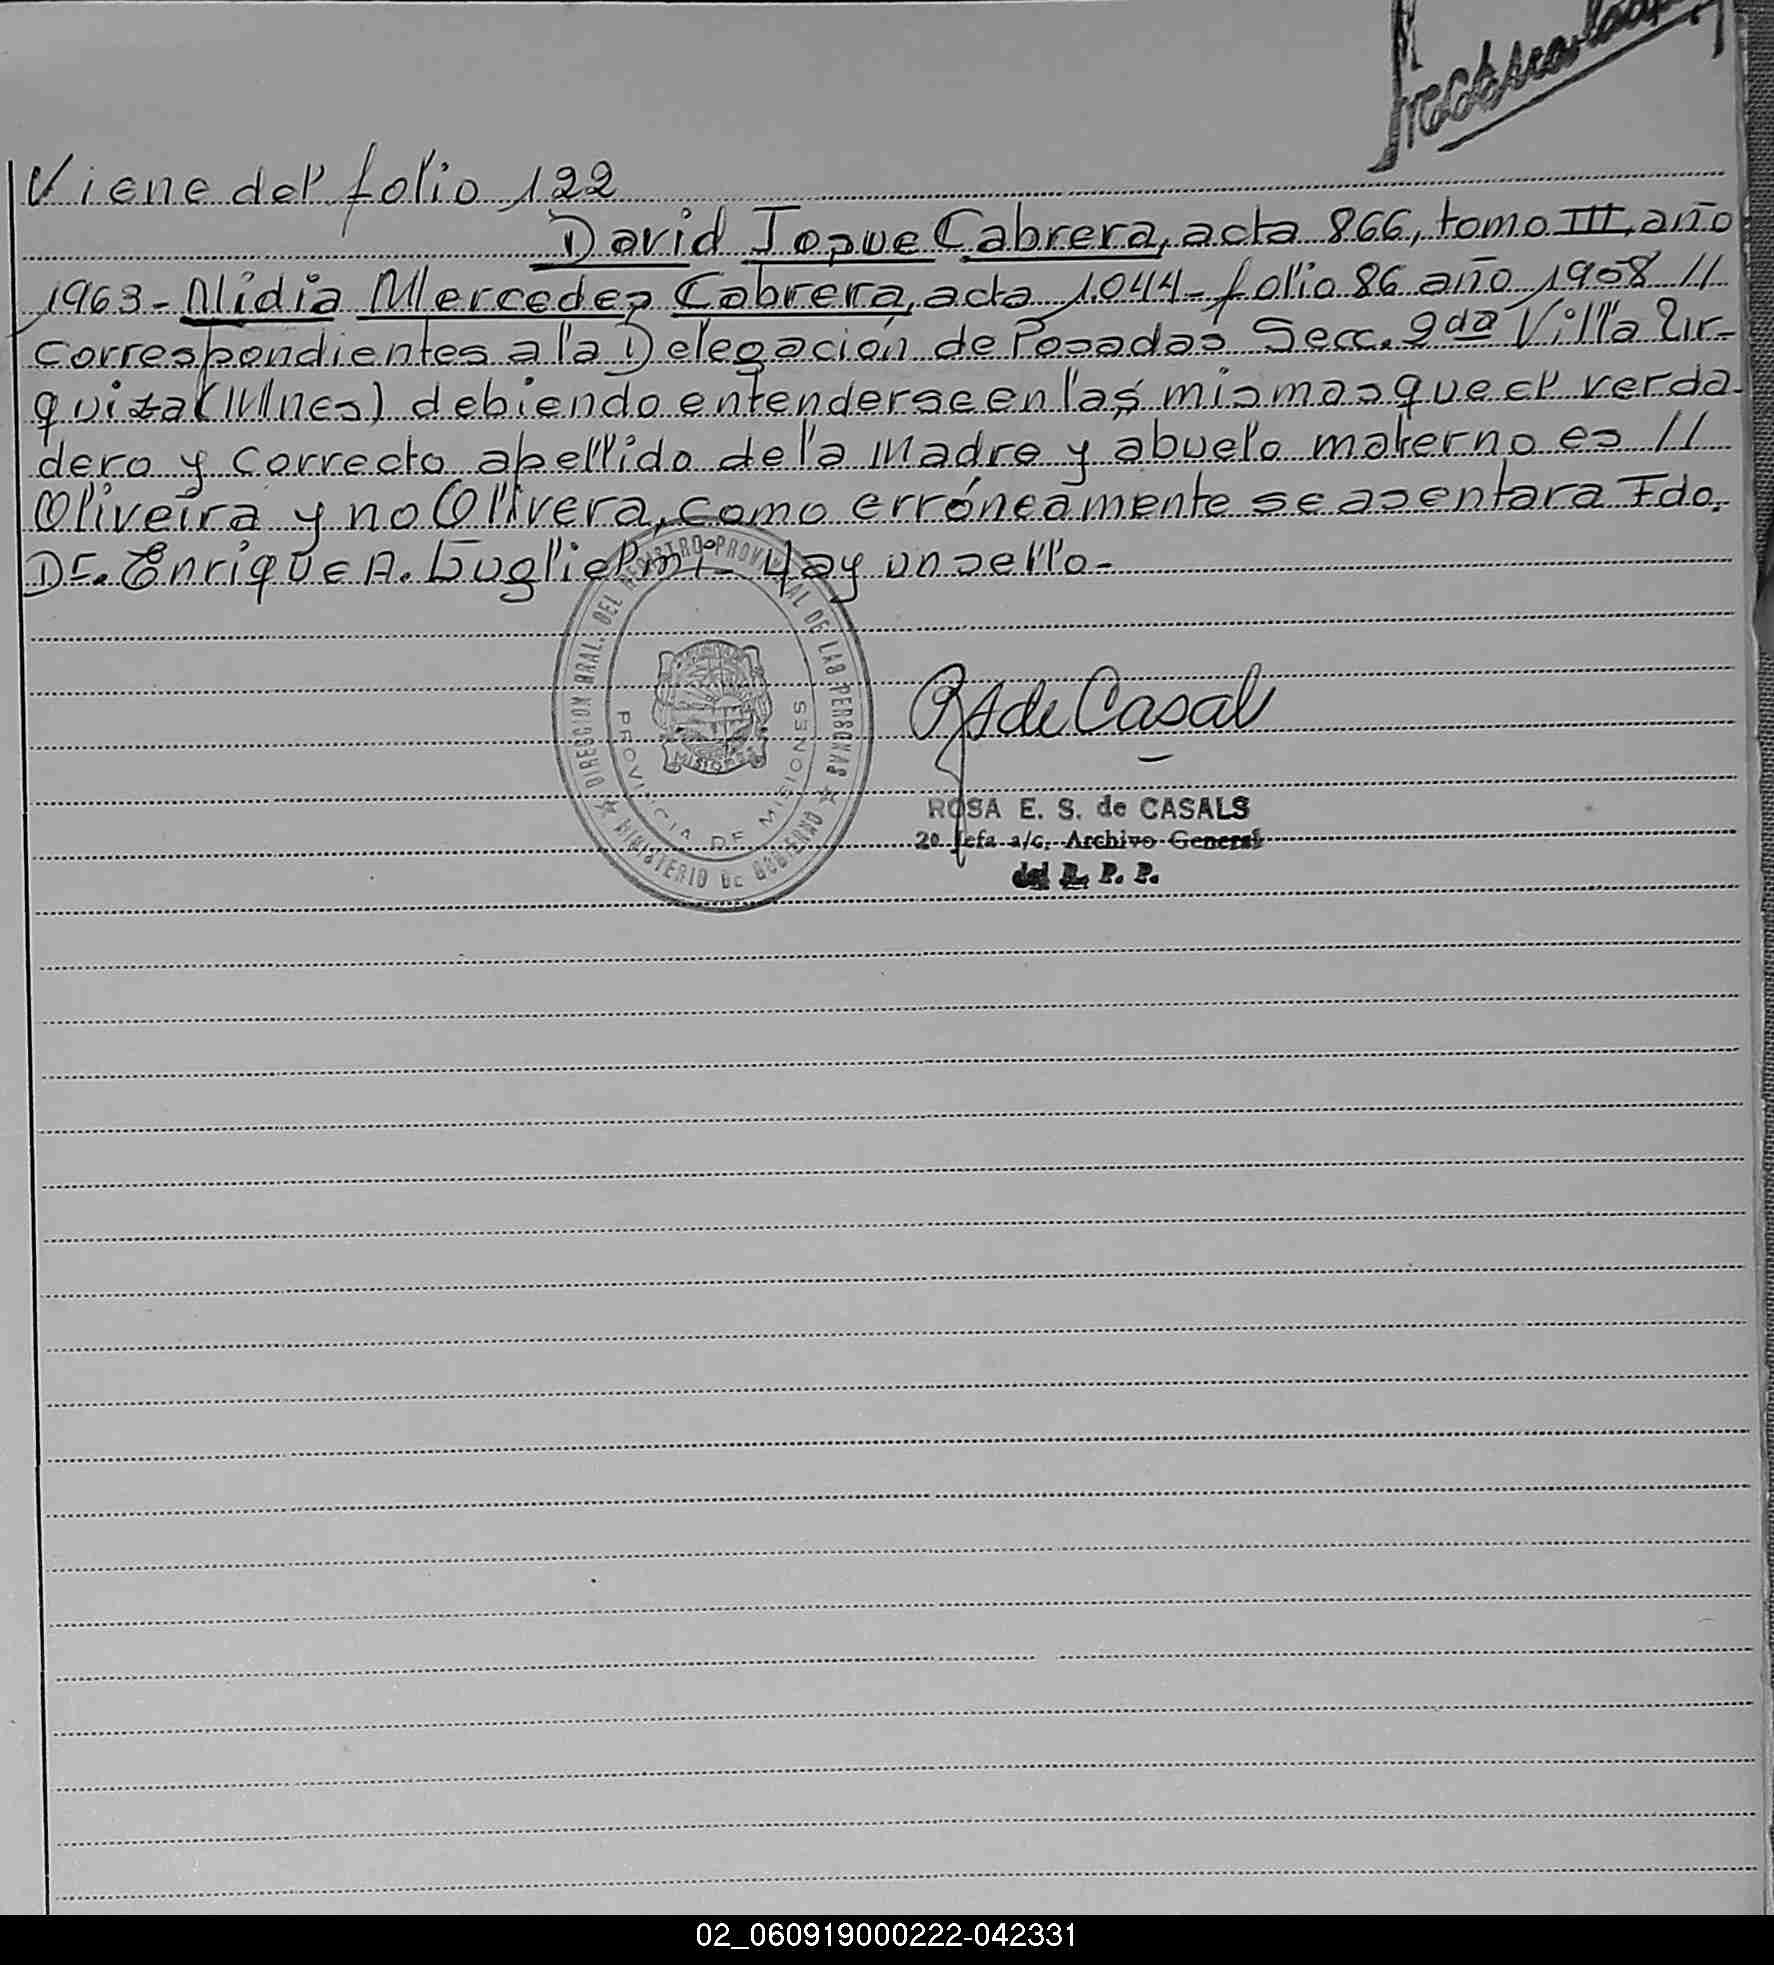 Viene del folio 122
David Josue Cabrera, acta 866, tomo III, año
1963- Nidia Mercedes Cabrera, acta 1.044- folio 86 año 1958 //
Correspondientes a la Delegación de Posadas Secc. 2da Villa Ur-
quiza (Mnes) debiendo entenderse en las mismas que el verda-
dero y correcto apellido de la madre y abuelo materno es //
Oliveira y no Olivera, como erróneamente se asentara Fdo.
Dr. Enrique A. Guglielmi- Hay un sello.-
DIRECCION GRAL. DEL REGISTRO PROVINCIAL DE LAS PERSONAS
MINISTERIO DE GOBIERNO
PROVINCIA DE MISIONES
MISIONES
de Casal
ROSA E. S. de CASALS
2o. Jefa a/c. Archivo General
del R. P. P.
02_060919000222-042331